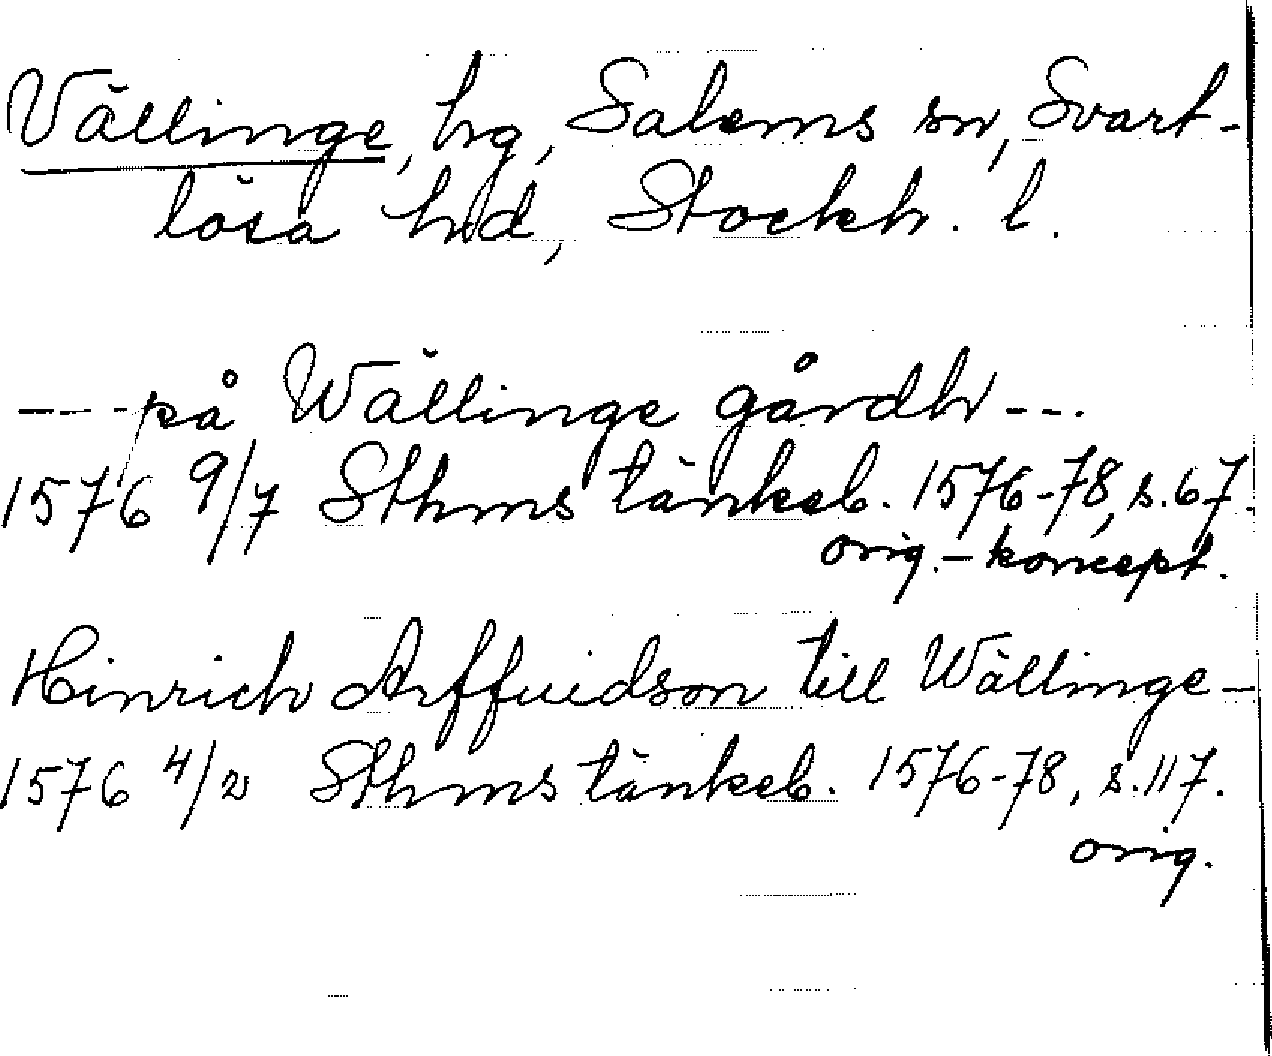 Vällinge, hg, Salems sn, Svart-
lösa hd, Stockh. l.
--- på Wällinge gårdh ---
1576 9/7 Sthms tänkeb. 1576-78, s. 67.
orig.-koncept.
Hinrich Arffuidson till Wällinge -
1576 4/2 Sthms tänkeb. 1576-78, s. 117.
orig.